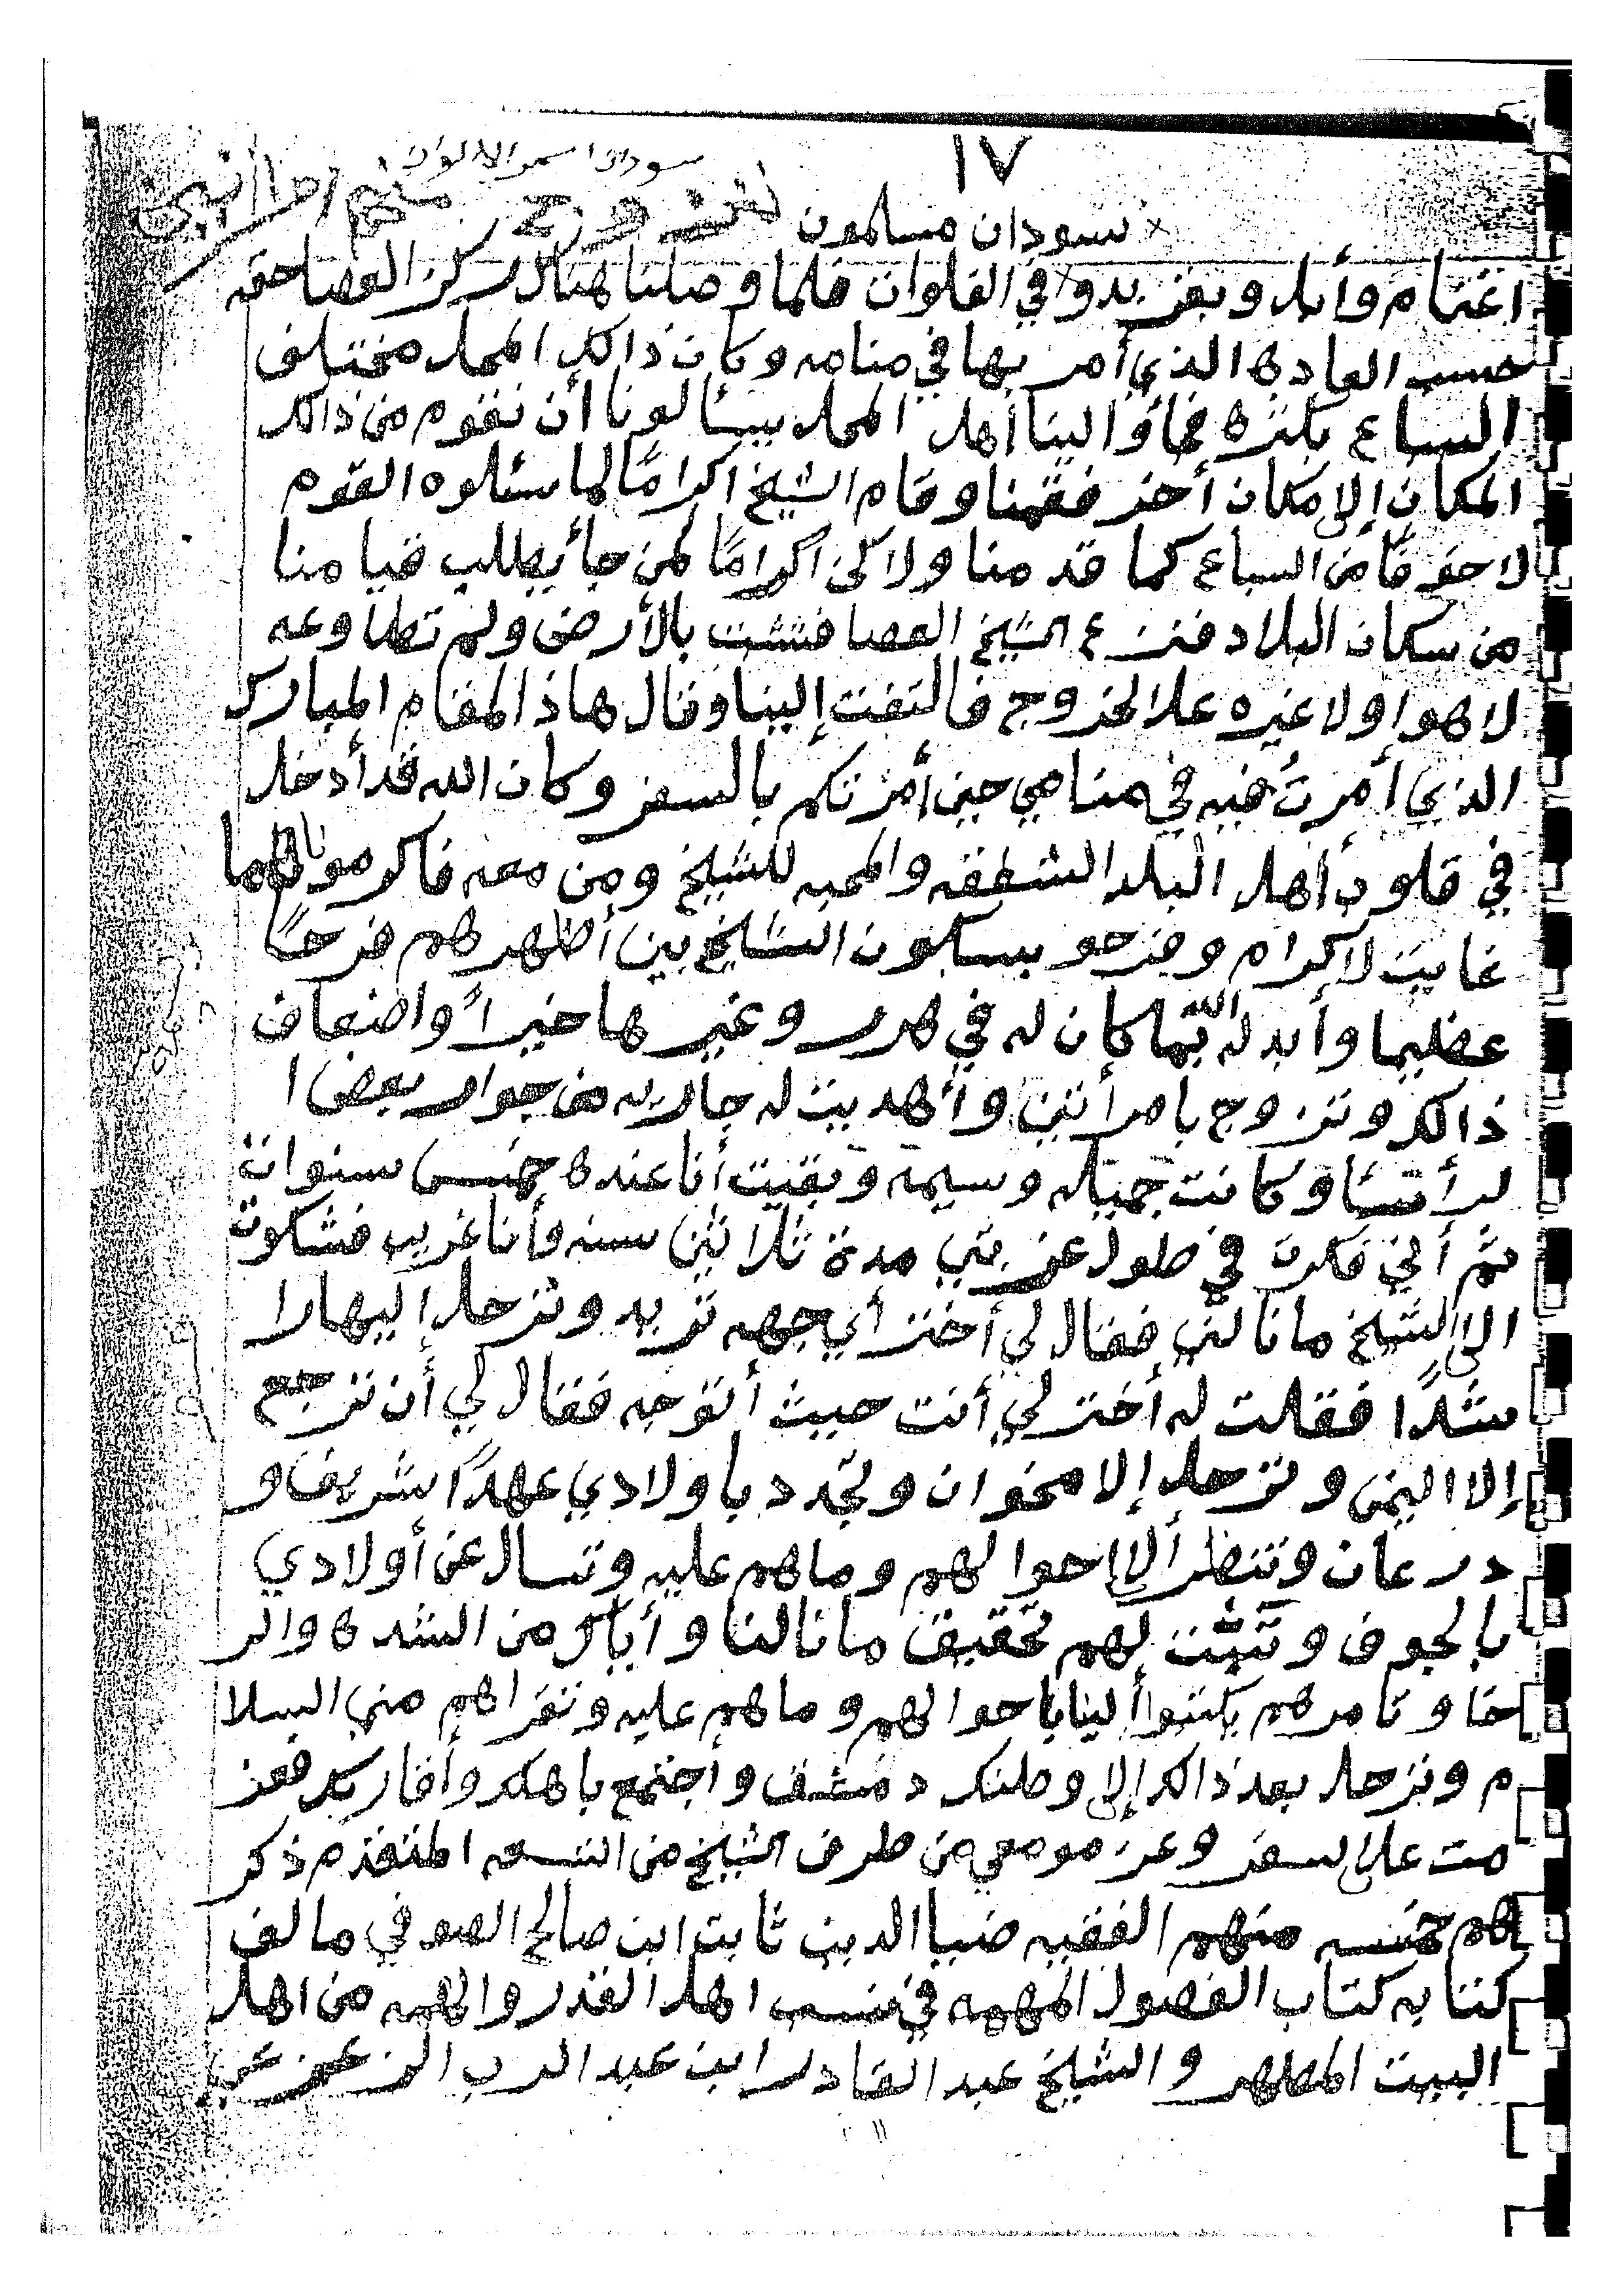 ١٧
سودان اسمر الالوان
× سودان مسلمون
اغنام وأبل وبقر بدو في الفلوان فلما وصلنا هناك ركز العصا حقه
حسب العاده الذي أمر بها في منامه وكان ذالك المحل مختلف
السباع بكثره فجاؤ الينا أهل المحل يسألونا أن نقوم من ذالك
المكان إلى مكان أخر فقمنا وقام الشيخ اكرامًا لما سئلوه القوم
لا خوفًا من السباع كما قدمنا ولاكن اكرامًا لمن جأ يطلب قيامنا
من سكان البلاد فنزع الشيخ العصا فثبتت بالأرض ولم تطاوعه
لا هوا ولا غيره علا الخروج فالتفت إلينا وقال هاذ المقام المبارك
الذي أمرتُ فيه في منامي حين أمرتكم بالسفر وكان الله قد أدخل
في قلوب أهل البلد الشفقه والمحبه للشيخ ومن معه فاكرمونا
غايت لاكرام وفرحو بسكون الشيخ بين أظهرهم فرحًا
عظيما وأبدله الله بما كان له في هرر وغيرها خيراً واضعاف
ذالك وتزوج بامرأتين وأهديت له جاريه من جوار بعض ا
لرأسا وكانت جميله وسيمه وبقيت أنا عنده خمس سنوات
ثم أني فكرت في طول غربتي مدة ثلاثين سنه وأنا غريب فشكوت
الى الشيخ ما نالني فقال لي أختر أي جهه تريد وترحل إليها را
شدًا فقلت له أختر لي أنت حيث أتوجه فقال لي أن ترجع
إلا اليمن وترحل إلا صخوان وتجدد باولادي عهدًا شريف و
درعان وتنظر ألا احوالهم وماهم عليه وتسال عن أولادي
بالجوف وتثبت لهم تحقيق ما نالنا وأياك من الشده والر
خا وتامرهم يكتبوا ألينا باحوالهم وماهم عليه وتقراهم مني السلا
م وترحل بعد ذالك إلى وطنك دمشق وأجتمع باهلك وأقاربك فعز
مت علا السفر وعزمو معي من طرف الشيخ من التسعه المتقدم ذكر
هم خمسه منهم الفقيه ضيا الدين ثابت ابن صالح الصوفي مالف
كتابه كتاب الفصول المهمه في نسب اهل القدر والهمه من اهل
البيت المطهر والشيخ عبد القادر ابن عبد الرب